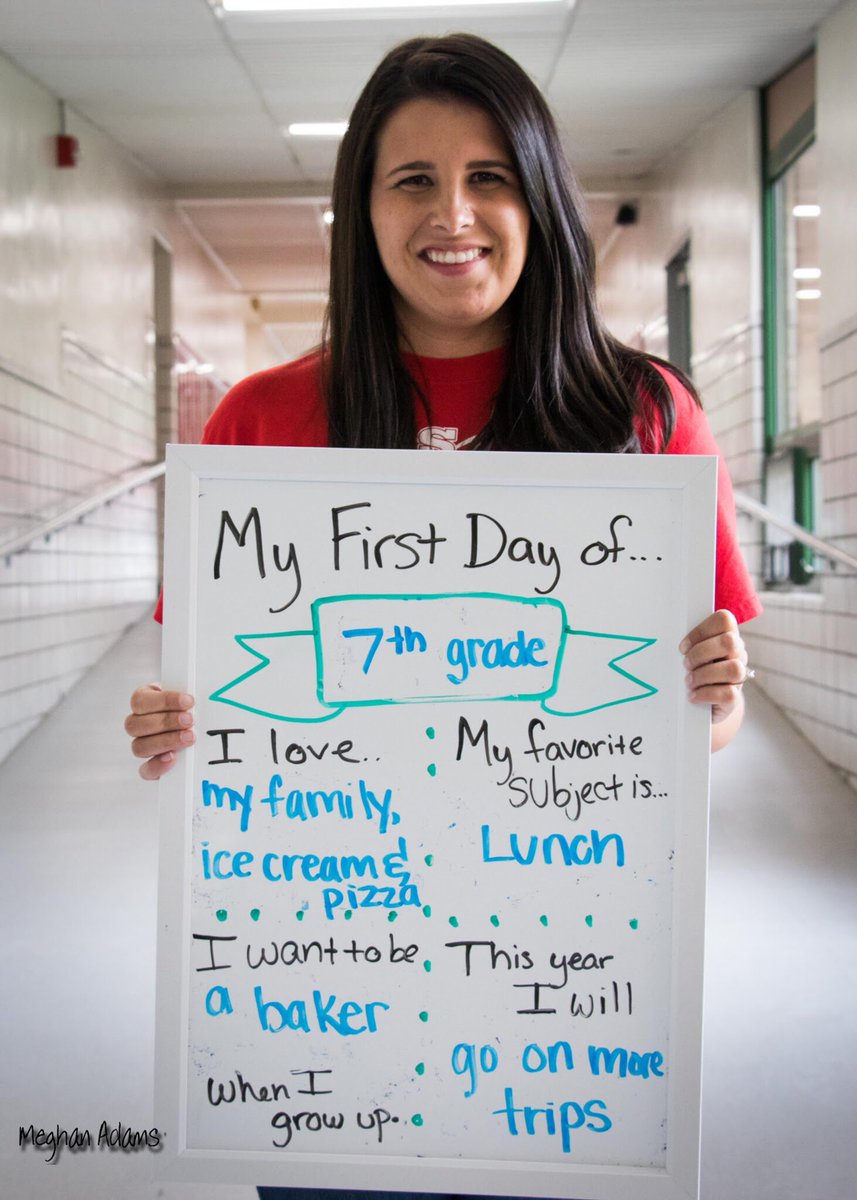 My First Day of...
7th grade
I love..
my family,
ice cream &
pizza
My favorite
subject is...
Lunch
I want to be
a baker
when I
grow up.
This year
I will
go on more
trips
Meghan Adams